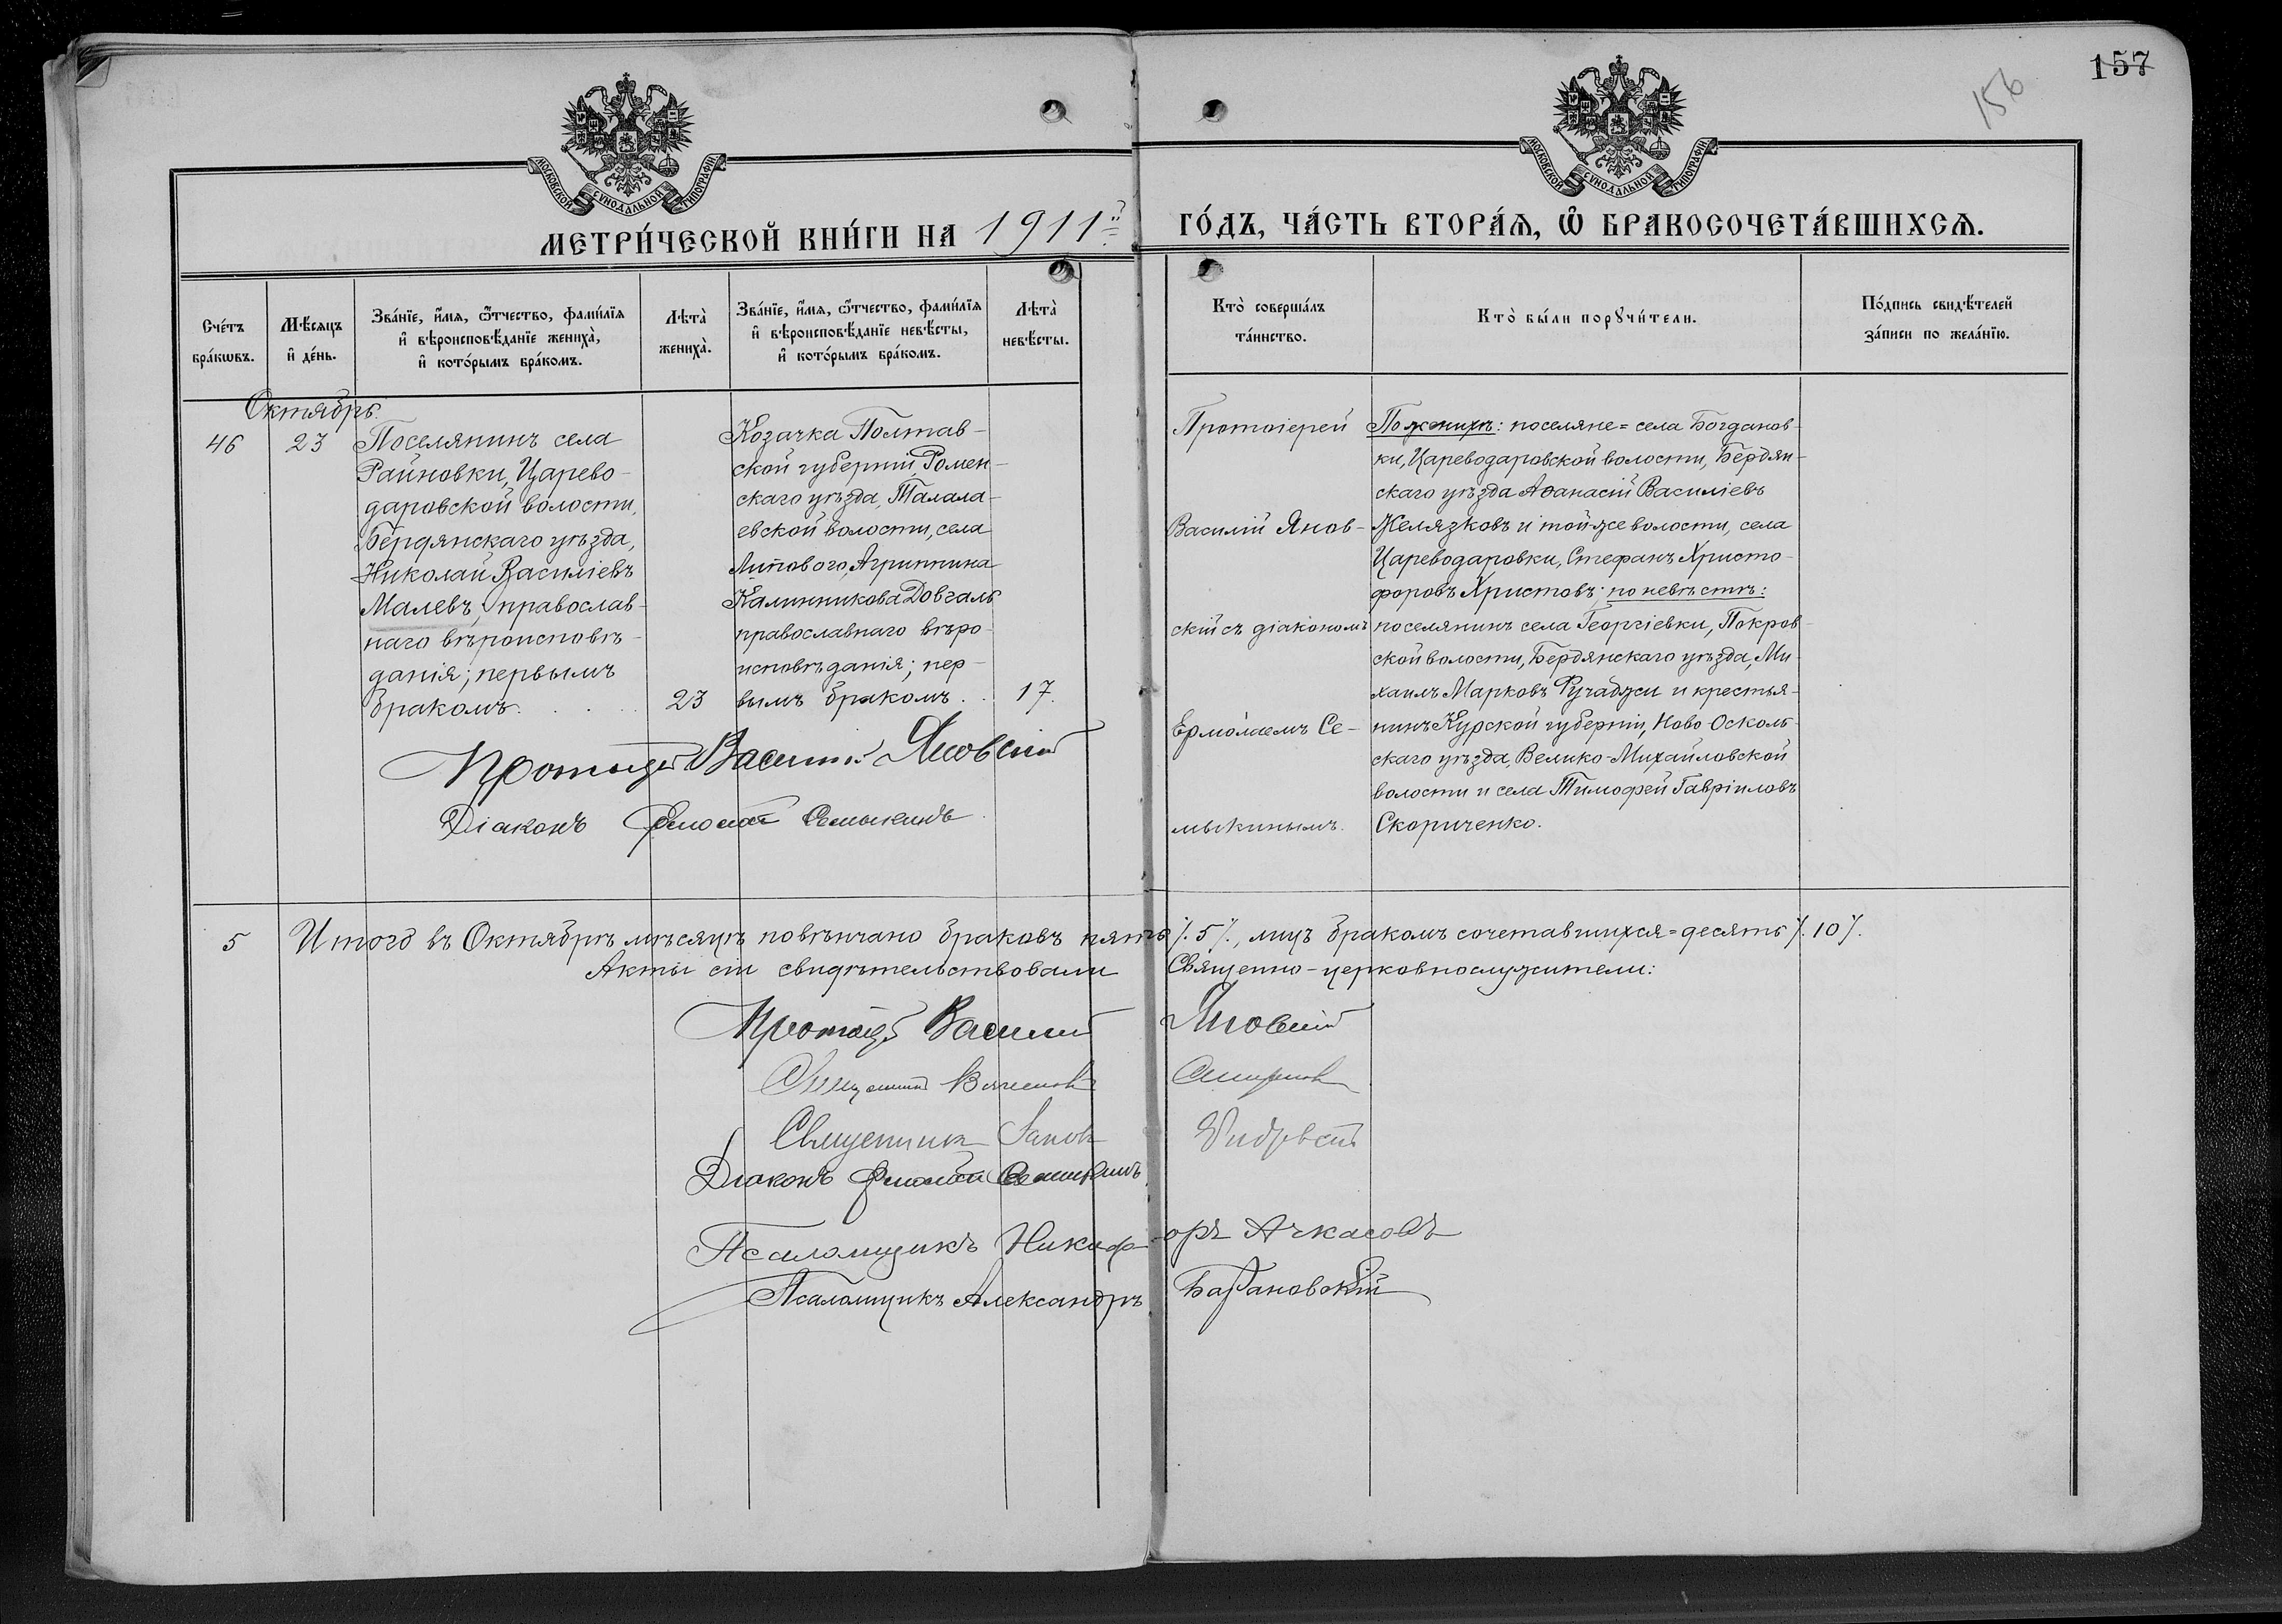 157
156
МОСКОВСКОЙ СѴНОДАЛЬНОЙ ТИПОГРАФІИ
МОСКОВСКОЙ СѴНОДАЛЬНОЙ ТИПОГРАФІИ
МЕТРИ́ЧЕСКОЙ КНИ́ГИ НА 1911й
ГО́ДЪ, ЧА́СТЬ ВТОРА́Я, Ѽ БРАКОСОЧЕТА́ВШИХСѦ.
Сче́тъ
бра́кѡвъ.
Мѣ́сяцъ
и҆ де́нь.
Зва́нїе, и҆́мя, ѻ҆́тчество, фами́лїя
и҆ вѣроисповѣ́данїе жениха̀,
и҆ кото́рымъ бра́комъ.
Лѣта̀
жениха̀.
Зва́нїе, и҆́мя, ѻ҆́тчество, фами́лїя
и҆ вѣроисповѣ́данїе невѣ́сты,
и҆ кото́рымъ бра́комъ.
Лѣта̀
невѣ́сты.
Кто̀ соверша́лъ
та́инство.
Кто̀ бы́ли порꙋчи́тели.
По́дпись свидѣ́телей
за́писи по жела́нїю.
Октябрь.
46
23
Поселянинъ села
Райновки, Царево-
даровской волости,
Бердянскаго уѣзда,
Николай Василіевъ
Малевъ, православ-
наго вѣроисповѣ-
данія; первымъ
бракомъ. . . .
23
Козачка Полтав-
ской губерніи, Ромен-
скаго уѣзда, Талала-
евской волости, села
Липового, Агриппина
Калинникова Довгаль
православнаго вѣро-
исповѣданія; пер-
вымъ бракомъ. .
17.
Протоіерей
Василій Янов-
скій съ діакономъ
Ермолаемъ Се-
мыкинымъ.
По женихѣ: поселяне= села Богданов-
ки, Цареводаровской волости, Бердян-
скаго уѣзда Аѳанасій Василіевъ
Желязковъ и той же волости, села
Цареводаровки, Стефанъ Христо-
форовъ Христовъ; по невѣстѣ:
поселянинъ села Георгіевки, Покров-
ской волости, Бердянскаго уѣзда, Ми-
хаилъ Марковъ Ручабджи и крестья-
нинъ Курской губерніи, Ново-Осколь-
скаго уѣзда, Велико-Михайловской
волости и села Тимофей Гавріиловъ
Скориченко.
Протоіерей Василій Яновскій
Діаконъ Ермолай Семыкинъ
5
Итого въ Октябрѣ мѣсяцѣ повѣнчано браковъ пять ٪5٪, лицъ бракомъ сочетавшихся= десять ٪10٪.
Акты сіи свидѣтельствовали Священно-церковнослужители:
Протоіерей Василій Яновскій
Священникъ
Священникъ
Діаконъ Ермолай Семыкинъ
Псаломщикъ Никифоръ Ачкасовъ
Псаломщикъ Александръ Барановскій